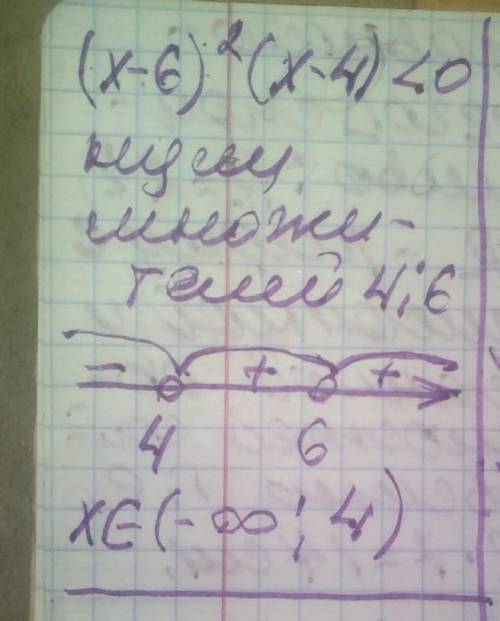 (x-6)²(x-4)<0
нули
множи-
телей 4; 6
- + +
4 6
x∈(-∞; 4)